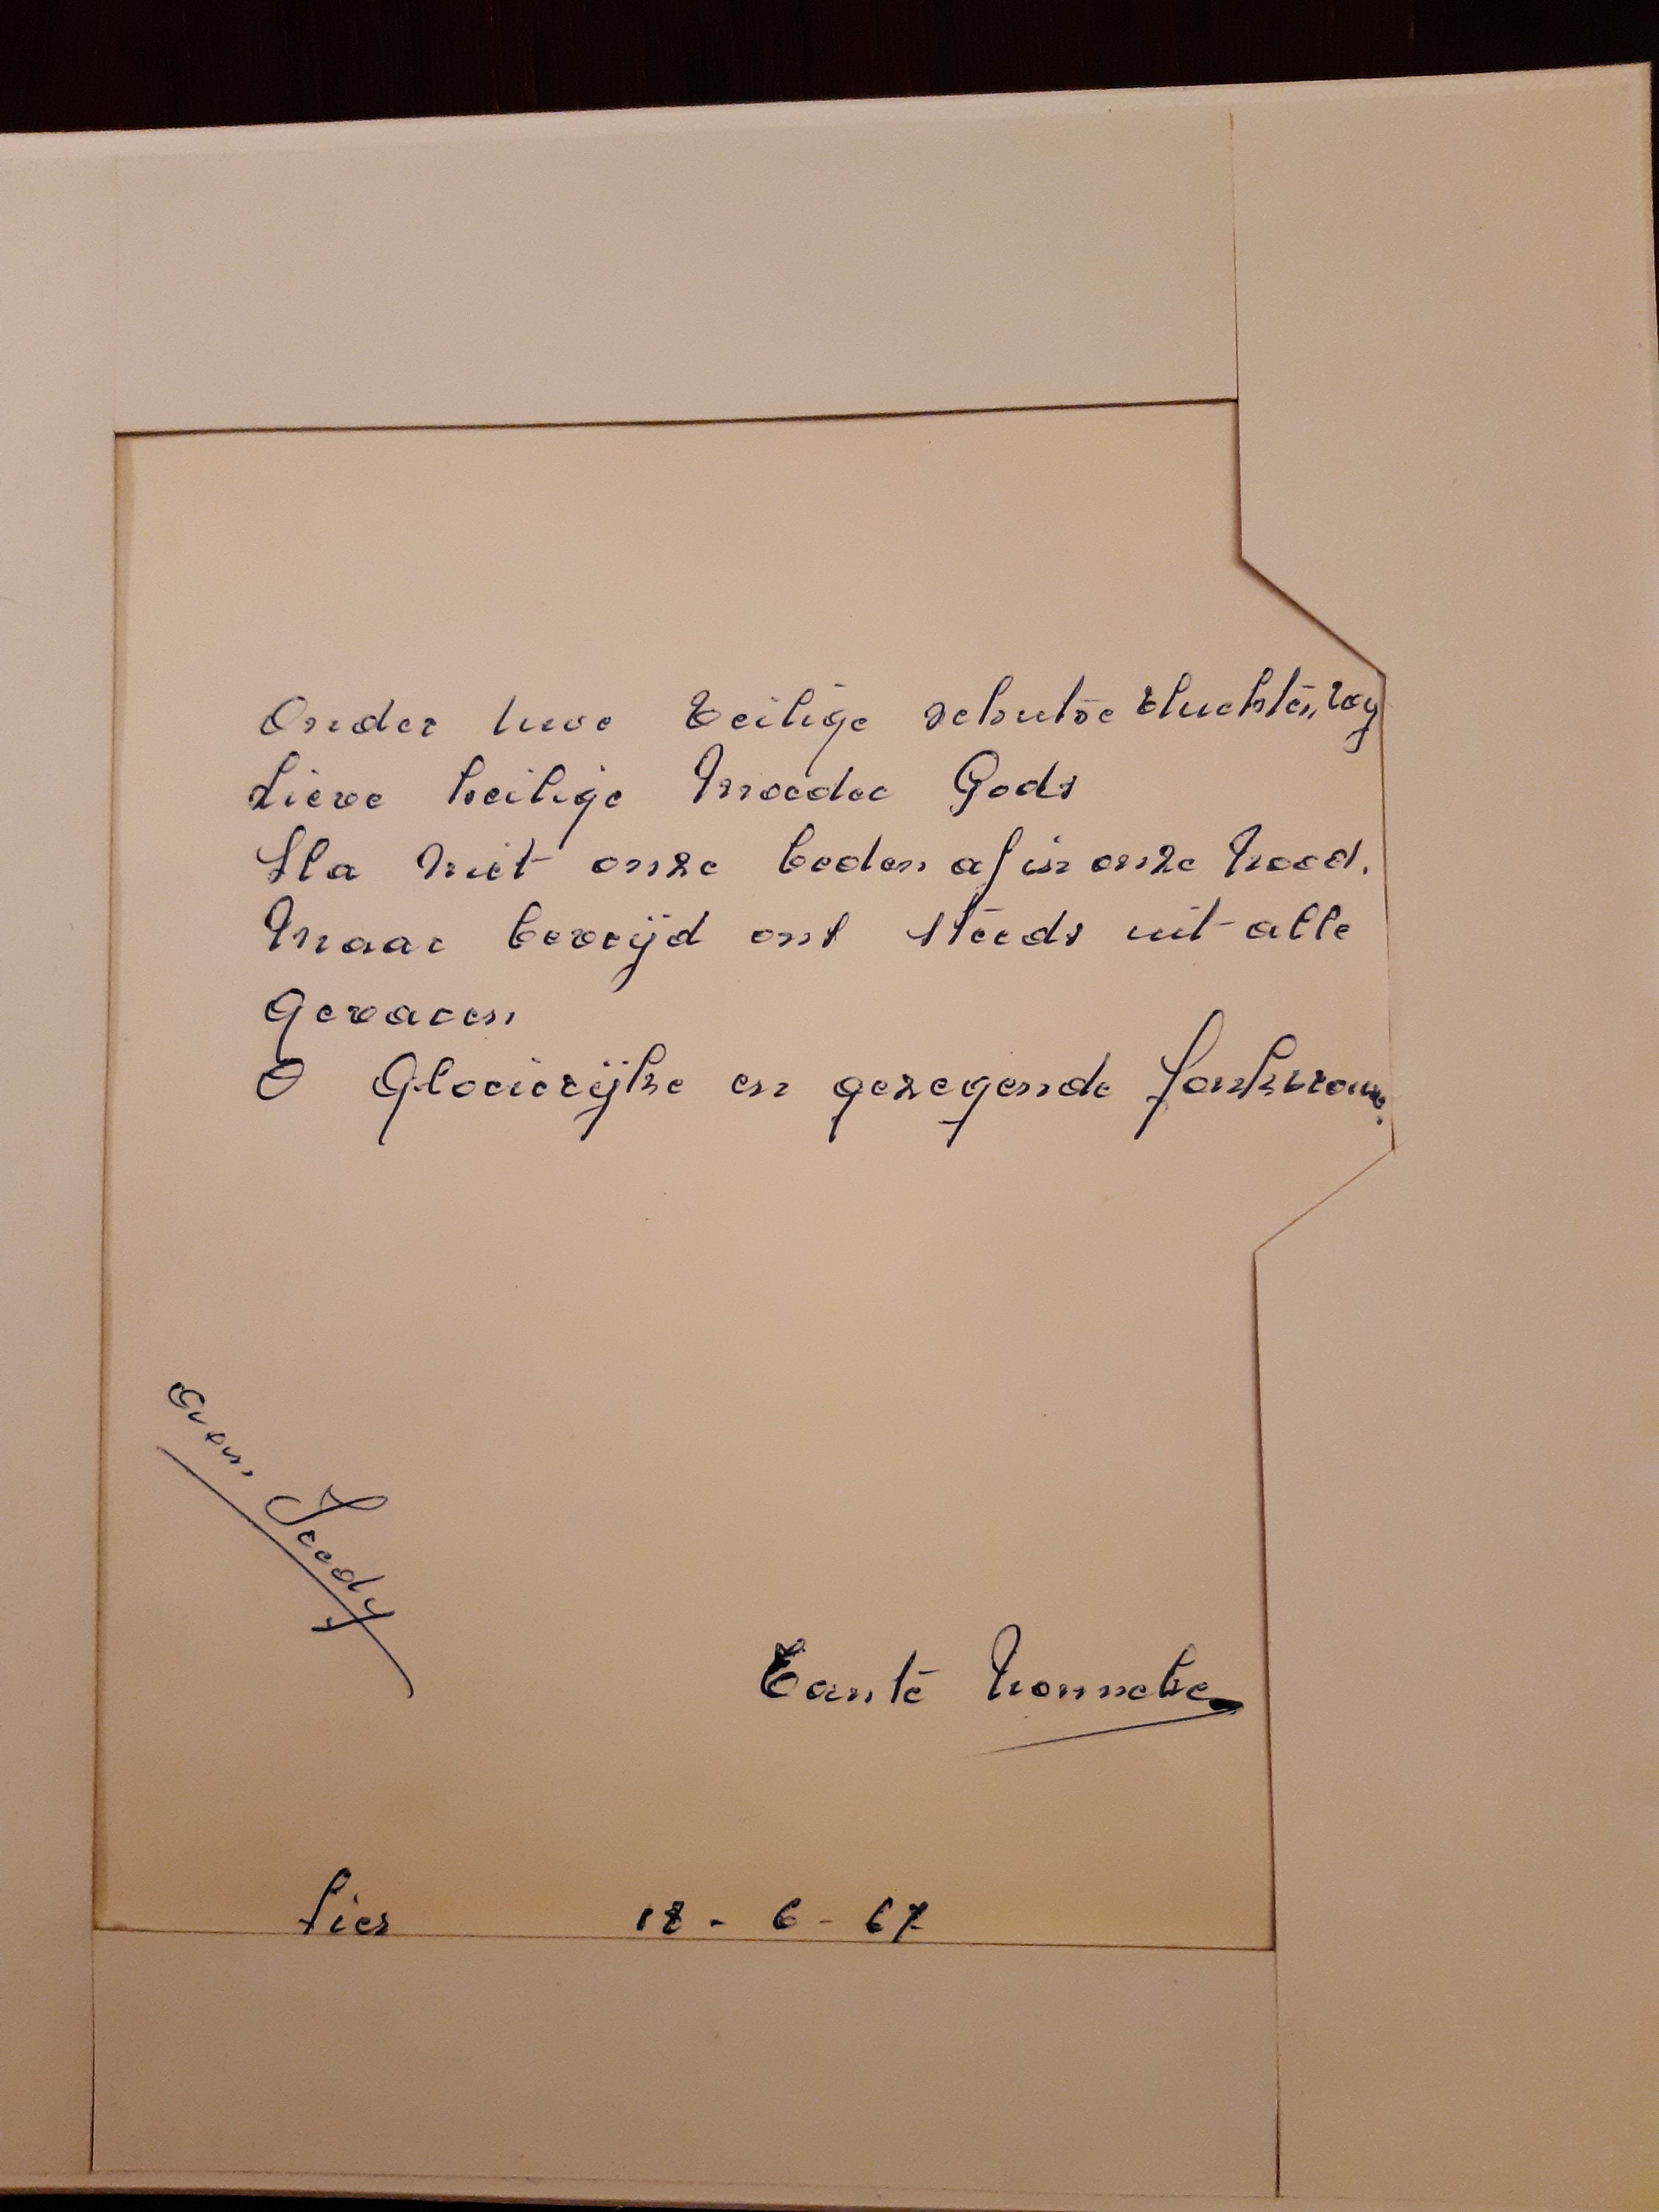 Onder Uwe Heilige schutse vluchten wij
Lieve heilige Moeder Gods
Sla niet onze beden af in onze Nood.
Maar bevrijd ons steeds uit alle
Gevaren
O Glorierijke en gezegende Jonkvrouw.
Tante Nonneke
Lier 18-6-67